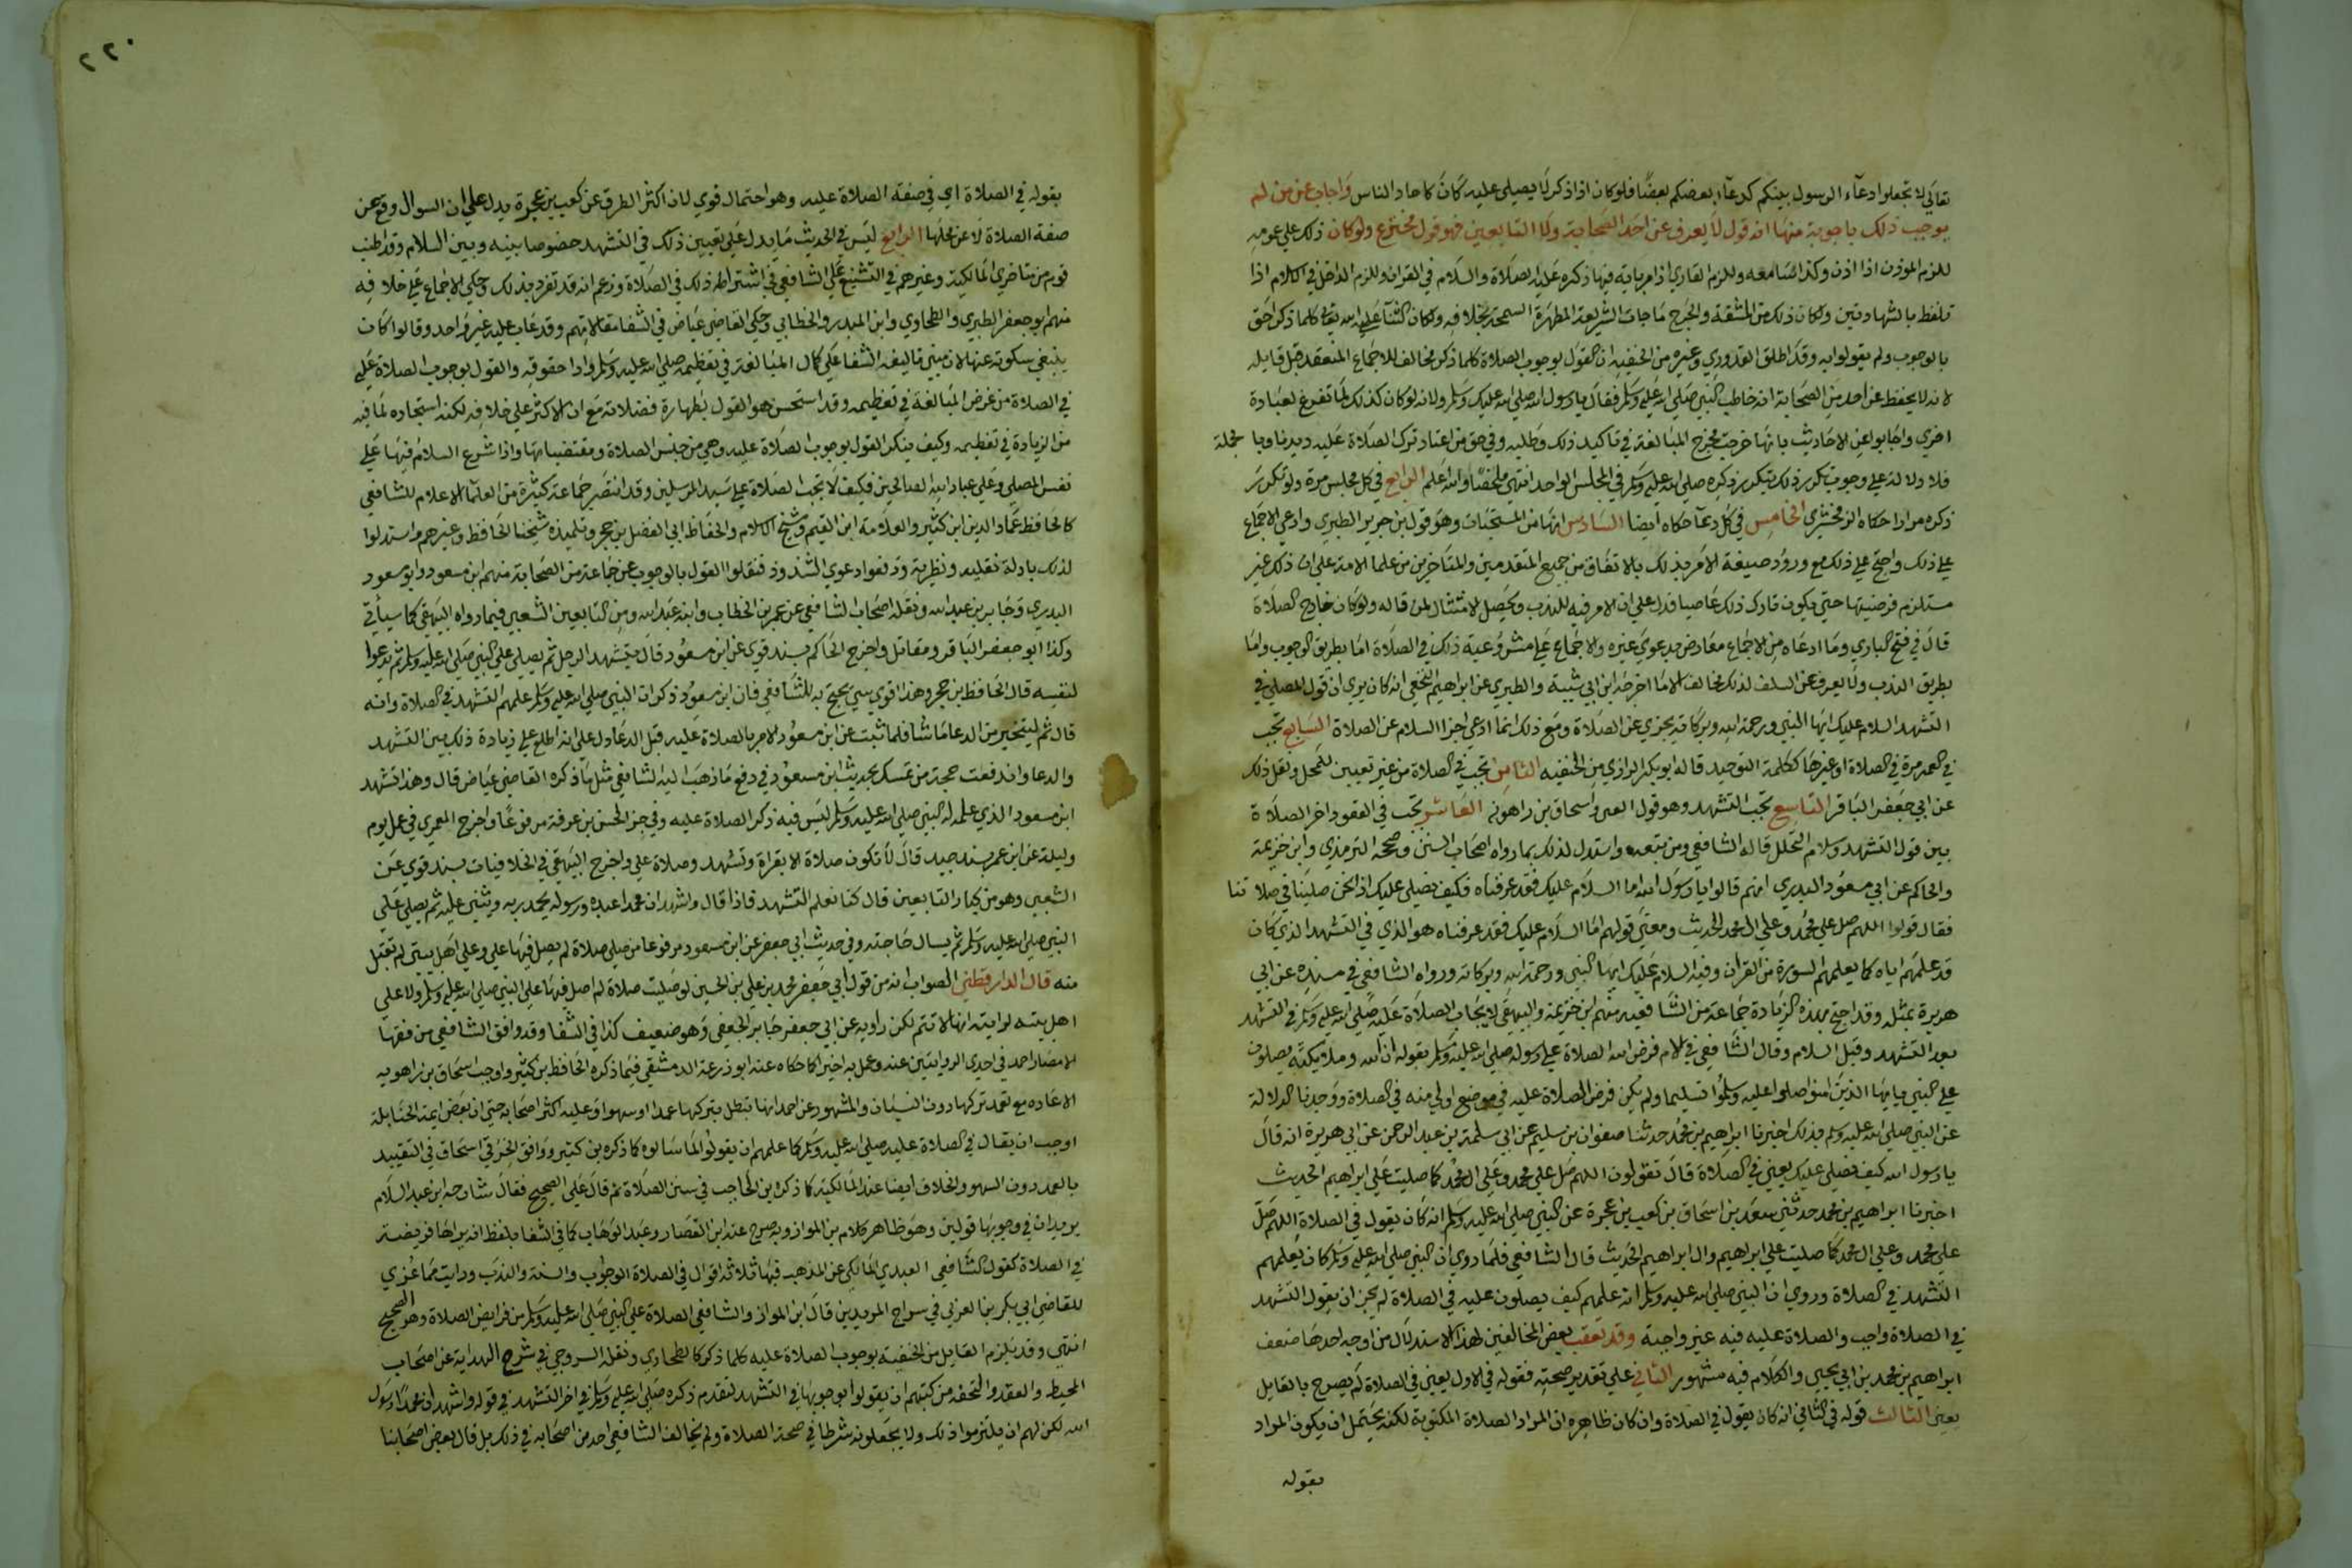 تعالى لا تجعلوا دعاء الرسول بينكم كدعاء بعضكم بعضا فلو كان اذا ذكر لا يصلى عليه كان كاحاد الناس واجاب عن من لم
يوجب ذلك باجوبة منها انه قول لا يعرف عن احد الصحابة ولا التابعين فهو قول مخترع ولو كان ذلك على عمومه
للزم الموذن اذا اذن وكذا سامعه وللزم القاري اذا مر باية فيها ذكره عليه الصلاة والسلام في القران وللزم الداخل في الاسلام اذا
تلفظ بالشهادتين ولكان ذلك من المشقة والحرج ما جات الشريعة المطهرة السمحة بخلافه ولكان الثنا على الله تعالى كلما ذكر احق
بالوجوب ولم يقولوا به وقد اطلق القدوري وغيره من الحنفيه ان القول بوجوب الصلاة كلما ذكر مخالف للاجماع المنعقد قبل قايله
لانه لا يحفظ عن احد من الصحابة انه خاطب النبي صلى الله عليه وسلم فقال يا رسول الله صلى الله عليك وسلم ولانه لو كان كذلك لما تفرغ لعبادة
اخري واجابوا عن الاحاديث بانها خرجت مخرج المبالغة في تاكيد ذلك وطلبه وفي حق من اعتاد ترك الصلاة عليه ديدنا وبالجملة
فلا دلالة على وجوب تكرر ذلك بتكرر ذكره صلى الله عليه وسلم في المجلس الواحد انتهى ملخصا والله اعلم الرابع في كل مجلس مرة ولو تكرر
ذكره مرارا حكاه الزمخشري الخامس في كل دعا حكاه ايضا السادس انها من المستحبات وهو قول بن جرير الطبري وادعى الاجماع
على ذلك واحتج على ذلك مع ورود صيغة الامر بذلك بالاتفاق من جميع المتقدمين والمتاخرين من علما الامة على ان ذلك غير
مستلزم فرضيتها حتي يكون تارك ذلك عاصيا فدل على ان الامر فيه للندب ويحصل الامتثال لمن قاله ولو كان خارج الصلاة
قال في فتح الباري وما ادعاه من الاجماع معارض بدعوي غيره والاجماع على مشروعية ذلك في الصلاة اما بطريق الوجوب واما
بطريق الندب ولا يعرف عن السلف لذلك مخالف الا ما اخرجه ابن ابي شيبة والطبري عن ابراهيم النخعي انه كان يري ان قول المصلي في
التشهد السلام عليك ايها النبي ورحمة الله وبركاته يجزي عن الصلاة ومع ذلك انما ادعي اجزا السلام عن الصلاة السابع تجب
في العمر مرة في الصلاة او غيرها ككلمة التوحيد قاله ابو بكر الرازي من الحنفيه الثامن تجب في الصلاة من غير تعيين للمحل ونقل ذلك
عن ابي جعفر الباقر التاسع تجب التشهد وهو قول الشعبي واسحاق بن راهونه العاشر تجب في القعود اخر الصلاة
بين قول التشهد وسلام التحلل قاله الشافعي ومن تبعه واستدل لذلك بما رواه اصحاب السنن وصححه الترمذي وابن خزيمة
والحاكم عن ابي مسعود البدري انهم قالوا يا رسول الله اما السلام عليك فقد عرفناه فكيف نصلي عليك اذا نحن صلينا في صلاتنا
فقال قولوا اللهم صل على محمد وعلى ال محمد الحديث ومعنى قولهم اما السلام عليك فقد عرفناه هو الذي في التشهد الذي كان
قد علمهم اياه كما يعلمهم السورة من القران وفيه السلام عليك ايها النبي ورحمة الله وبركاته ورواه الشافعي في مسنده عن ابي
هريرة بمثله وقد احتج بهذه الزيادة جماعة من الشافعيه منهم ابن خزيمة والبيهقي لايجاب الصلاة عليه صلى الله عليه وسلم في التشهد
بعد التشهد وقبل السلام وقال الشافعي في الام فرض الله الصلاة على رسوله صلى الله عليه وسلم بقوله ان الله وملايكته يصلون
على النبي يا ايها الذين امنوا صلوا عليه وسلموا تسليما ولم يكن فرض الصلاة عليه في موضع اولى منه في الصلاة ووجدنا الدلالة
عن النبي صلى الله عليه وسلم بذلك اخبرنا ابراهيم بن محمد حدثنا صفوان بن سليم عن ابي سلمة بن عبد الرحمن عن ابي هريرة انه قال
يا رسول الله كيف نصلي عليك يعني في الصلاة قال تقولون اللهم صل على محمد وعلى ال محمد كما صليت على ابراهيم الحديث
اخبرنا ابراهيم بن محمد حدثني سعد بن اسحاق بن كعب بن عجرة عن النبي صلى الله عليه وسلم انه كان يقول في الصلاة اللهم صل
على محمد وعلى ال محمد كما صليت على ابراهيم وال ابراهيم الحديث قال الشافعي فلما روي ان النبي صلى الله عليه وسلم كان يعلمهم
التشهد في الصلاة وروي ان النبي صلى الله عليه وسلم انه علمهم كيف يصلون عليه في الصلاة لم يجز ان يقول التشهد
في الصلاة واجب والصلاة عليه فيه غير واجبة وقد تعقب بعض المخالفين لهذا الاستدلال من اوجه احدها ضعف
ابراهيم بن محمد بن ابي يحيى والكلام فيه مشهور الثاني على تقدير صحته فقوله في الاول يعني في الصلاة لم يصرح بالقايل
يعني الثالث قوله في الثاني انه كان يقول في الصلاة وان كان ظاهره ان المراد الصلاة المكتوبة لكنه يحتمل ان يكون المراد
بقوله
٢٢٠
بقوله في الصلاة اي في صفة الصلاة عليه وهو احتمال قوي لان اكثر الطرق عن كعب بن عجرة يدل على ان السوال وقع عن
صفة الصلاة لا عن محلها الرابع ليس في الحديث ما يدل على تعيين ذلك في التشهد خصوصا بينه وبين السلام وقد اطنب
قوم من متاخري المالكية وغيرهم في التشنيع على الشافعي في اشتراطه ذلك في الصلاة وزعم انه قد تفرد بذلك وحكي الاجماع على خلافه
منهم ابو جعفر الطبري والطحاوي وابن المنذر والخطابي وحكي القاضي عياض في الشفا مقالاتهم وقد عاب عليه غير واحد وقالوا كان
ينبغي سكوته عنها لان مبني تاليفه الشفا على كمال المبالغة في تعظيمه صلى الله عليه وسلم وادا حقوقه والقول بوجوب الصلاة عليه
في الصلاة من غرض المبالغة في تعظيمه وقد استحسن هو القول بطهارة فضلاته مع ان الاكثر على خلافه لكنه استجاده لما فيه
من الزيادة في تعظيمه وكيف ينكر القول بوجوب الصلاة عليه وهي من جنس الصلاة ومقتضياتها واذا شرع السلام فيها على
نفس المصلي وعلى عباد الله الصالحين فكيف لا تجب الصلاة على سيد المرسلين وقد انتصر جماعة كثيرة من العلما الاعلام للشافعي
كالحافظ عماد الدين ابن كثير والعلامة ابن القيم وشيخ الاسلام والحفاظ ابي الفضل بن حجر وتلميذه شيخنا الحافظ وغيرهم واستدلوا
لذلك بادلة نقليه ونظرية ودفعوا دعوي الشذوذ فنقلوا القول بالوجوب عن جماعة من الصحابة منهم ابن مسعود وابو مسعود
البدري وجابر بن عبد الله ونقله اصحاب الشافعي عن عمر بن الخطاب وابنه عبد الله ومن التابعين الشعبي فيما رواه البيهقي كما سيأتي
وكذا ابو جعفر الباقر ومقاتل واخرج الحاكم بسند قوي عن ابن مسعود قال يتشهد الرجل ثم يصلي على النبي صلى الله عليه وسلم ثم يدعوا
لنفسه قال الحافظ بن حجر وهذا اقوي شي يحتج به للشافعي فان ابن مسعود ذكر ان النبي صلى الله عليه وسلم علمهم التشهد في الصلاة وانه
قال ثم ليتخير من الدعا ما شا فلما ثبت عن ابن مسعود الامر بالصلاة عليه قبل الدعا دل على انه اطلع على زيادة ذلك بين التشهد
والدعا واندفعت حجة من تمسك بحديث ابن مسعود في دفع ما ذهب اليه الشافعي مثل ما ذكره القاضي عياض قال وهذا تشهد
ابن مسعود الذي علمه له النبي صلى الله عليه وسلم ليس فيه ذكر الصلاة عليه وفي جز الحسن بن عرفة مرفوعا واخرج المعمري في عمل يوم
وليلة عن ابن عمر بسند جيد قال لا تكون صلاة الا بقراة وتشهد وصلاة على واخرج البيهقي في الخلافيات بسند قوي عن
الشعبي وهو من كبار التابعين قال كنا نعلم التشهد فاذا قال واشهد ان محمدا عبده ورسوله يحمد ربه ويثني عليه ثم يصلي على
النبي صلى الله عليه وسلم ثم يسال حاجته وفي حديث ابي جعفر عن ابن مسعود مرفوعا من صلى صلاة لم يصل فيها على وعلى اهل بيتي لم تقبل
منه قال الدارقطني الصواب انه من قول ابي جعفر محمد بن علي بن الحسين لو صليت صلاة لم اصل فيها على النبي صلى الله عليه وسلم ولا على
اهل بيته لرايت انها لا تتم لكن راويه عن ابي جعفر جابر الجعفي وهو ضعيف كذا في الشفا وقد وافق الشافعي من فقها
الامصار احمد في احدي الروايتين عنه وعمل به اخيرا كما حكاه عنه ابو زرعة الدمشقي فيما ذكره الحافظ بن كثير واوجب اسحاق بن راهويه
الاعاده مع تعمد تركها دون النسيان والمشهور عن احمد انها تبطل بتركها عمدا او سهوا وعليه اكثر اصحابه حتي ان بعض ايمة الحنابلة
اوجب ان يقال في الصلاة عليه صلى الله عليه وسلم كما علمهم ان يقولوا لما سالوه كما ذكره بن كثير ووافق الخرقي اسحاق في التقييد
بالعمد دون السهو والخلاف ايضا عند المالكية كما ذكره بن الحاجب في سنن الصلاة ثم قال على الصحيح فقال شارحه ابن عبد السلام
يريد ان في وجوبها قولين وهو ظاهر كلام بن المواز وبه صرح عنه ابن القصار وعبد الوهاب كما في الشفا بلفظ انه يراها فريضة
في الصلاة كقول الشافعي العبدي المالكي عن المذهب فيها ثلاثة اقوال في الصلاة الوجوب والسنة والندب ورايت مما عزي
للقاضي ابي بكر بن العربي في سراج المريدين قال ابن المواز والشافعي الصلاة على النبي صلى الله عليه وسلم من فرايض الصلاة وهو الصحيح
انتهى وقد يلزم القايل من الحنفية بوجوب الصلاة عليه كلما ذكر كالطحاوي ونقله السروجي في شرح الهداية عن اصحاب
المحيط والعقد والتحفه من كتبهم ان يقولوا بوجوبها في التشهد لتقدم ذكره صلى الله عليه وسلم في اخر التشهد في قوله واشهد ان محمدا رسول
الله لكن لهم ان يلتزموا ذلك ولا يجعلونه شرطا في صحة الصلاة ولم يخالف الشافعي احد من اصحابه في ذلك بل قال بعض اصحابنا